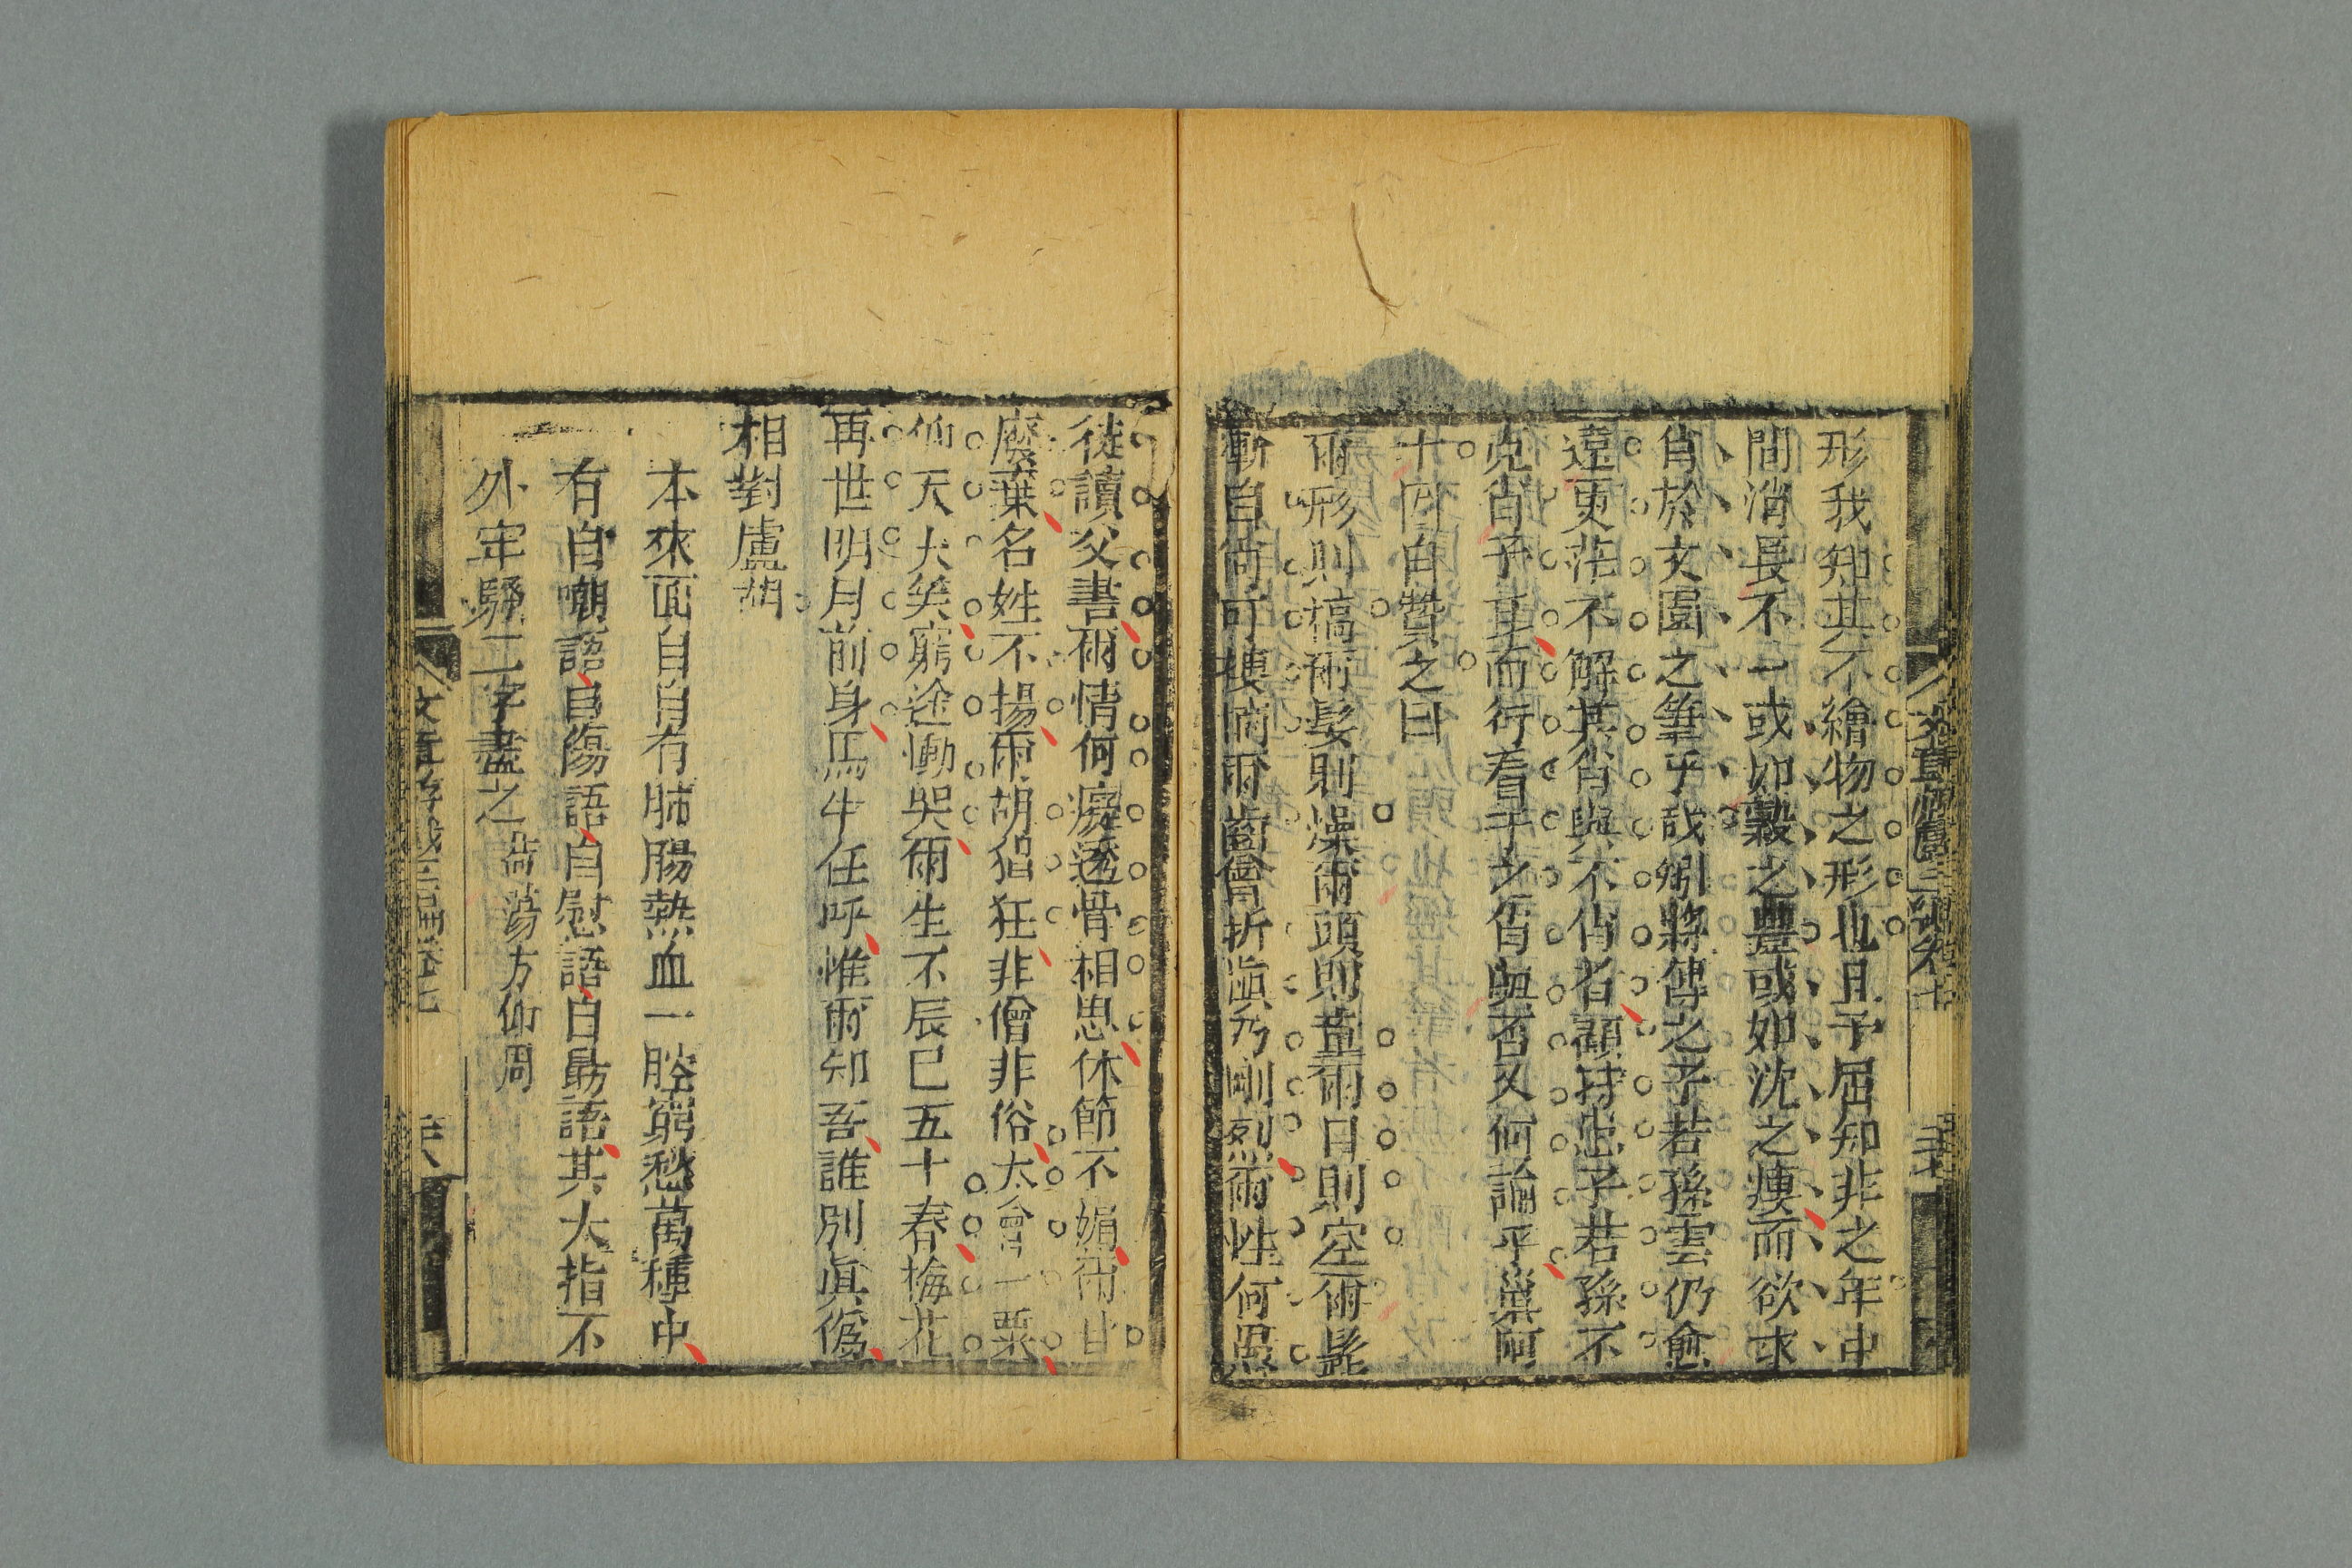 形我知其不繪物之形也且予屈知非之年中
間消長不一或如穀之豐或如沈之瘦而欲求
肖於文園之筆乎哉矧將傳之子若孫雲仍愈
遠更茫不解其肖與不肖者顧持語子若孫不
克肖予事而行看子之肖與否又何論乎巢阿
十因自贊之曰
爾形則槁爾髮則燥爾頭則童爾目則空爾髭
斬自何可摟爾齒曾折眞乃剛烈爾性何愚
徒讀父書爾情何癡透骨相思休節不媚爾甘
廢棄名姓不揚爾胡猖狂非僧非俗太倉一粟
仰天大笑窮途慟哭爾生不辰已五十春梅花
再世明月前身馬牛任呼惟爾知吾誰別眞僞
相對盧胡
本來面目自有肺腸熱血一腔窮愁萬種中
有自嘲語自傷語自慰語自勗語其大指不
外牢騷二字盡之 荷蕩方仰周